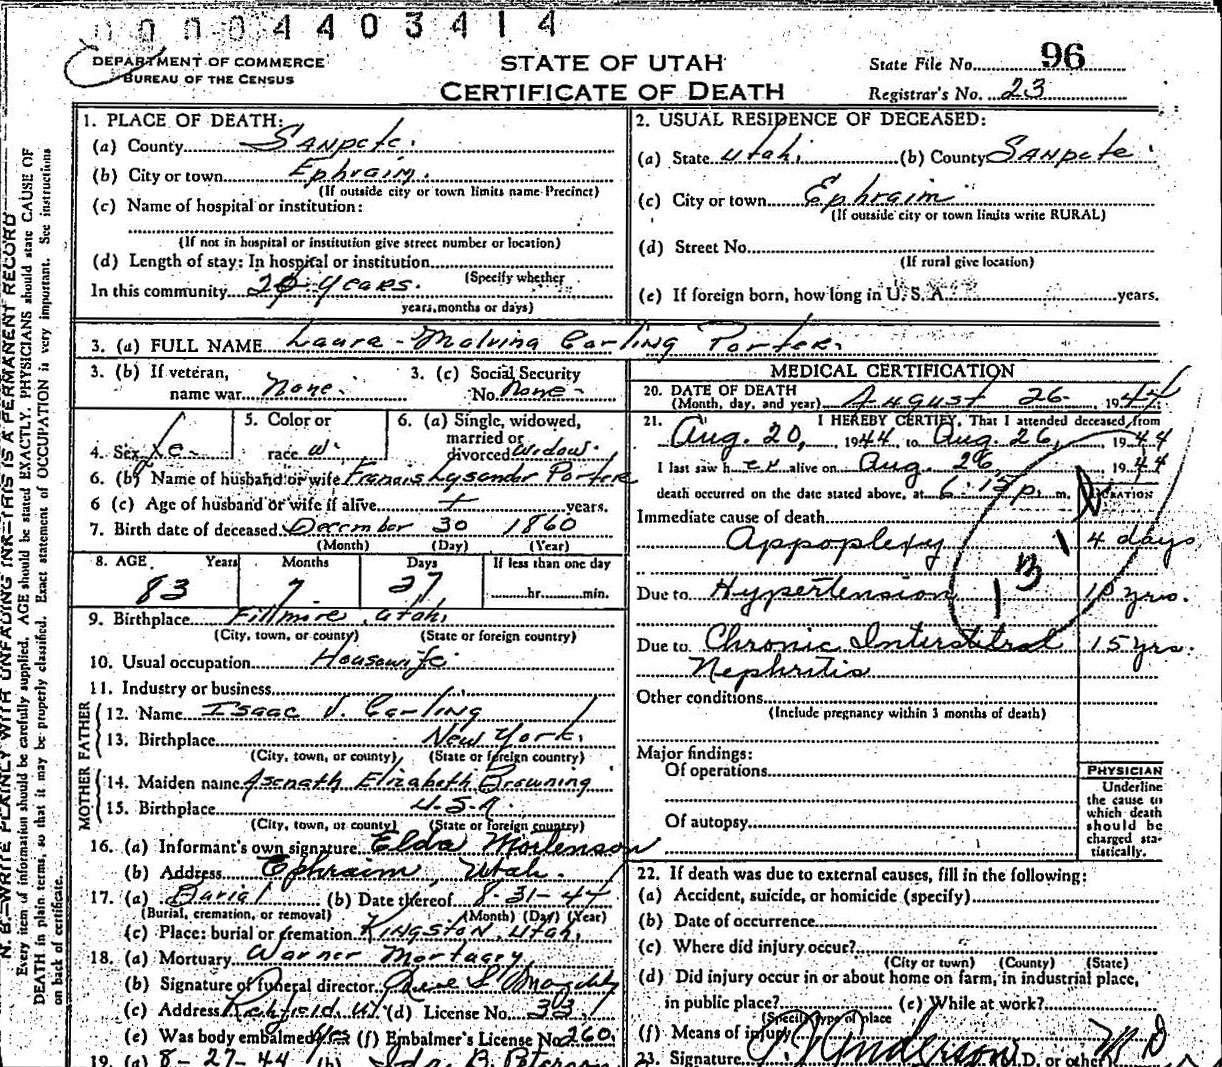 0000 4403414
DEPARTMENT OF COMMERCE
BUREAU OF THE CENSUS
STATE OF UTAH
CERTIFICATE OF DEATH
State File No. 96
Registrar's No. 23
N. B.—WRITE PLAINLY WITH UNFADING INK—THIS IS A PERMANENT RECORD
Every item of information should be carefully supplied. AGE should be stated EXACTLY. PHYSICIANS should state CAUSE OF
DEATH in plain terms, so that it may be properly classified. Exact statement of OCCUPATION is very important. See instructions
on back of certificate.
1. PLACE OF DEATH:
(a) County Sanpete.
(b) City or town Ephraim.
(If outside city or town limits name Precinct)
(c) Name of hospital or institution:
(If not in hospital or institution give street number or location)
(d) Length of stay: In hospital or institution
(Specify whether
In this community years.
years, months or days)
2. USUAL RESIDENCE OF DECEASED:
(a) State Utah. (b) County Sanpete.
(c) City or town Ephraim
(If outside city or town limits write RURAL)
(d) Street No.
(If rural give location)
(e) If foreign born, how long in U. S. A. years.
3. (a) FULL NAME Laura - Malvina Carling Porter.
3. (b) If veteran, name war None.
3. (c) Social Security No. None.
4. Sex Fe.
5. Color or race W.
6. (a) Single, widowed, married or divorced Widow.
6. (b) Name of husband or wife Francis Lysander Porter
6 (c) Age of husband or wife if alive years.
7. Birth date of deceased December 30 1860
(Month) (Day) (Year)
8. AGE Years Months Days If less than one day
83 7 27 hr. min.
9. Birthplace Fillmore, Utah.
(City, town, or county) (State or foreign country)
10. Usual occupation Housewife
11. Industry or business
FATHER
12. Name Isaac V. Carling
13. Birthplace New York.
(City, town, or county) (State or foreign country)
MOTHER
14. Maiden name Asenath Elizabeth Browning
15. Birthplace U.S.A.
(City, town, or county) (State or foreign country)
16. (a) Informant's own signature Elda Mortenson
(b) Address Ephraim, Utah.
17. (a) Burial (b) Date thereof 8-31-44
(Burial, cremation, or removal) (Month) (Day) (Year)
(c) Place: burial or cremation Kingston, Utah.
18. (a) Mortuary Warner Mortuary
(b) Signature of funeral director
(c) Address Richfield, Ut (d) License No. 33
(e) Was body embalmed Yes (f) Embalmer's License No. 260.
19. (a) 8-27-44 (b) B. Peterson
MEDICAL CERTIFICATION
20. DATE OF DEATH
(Month, day, and year) August 26, 1944
21. I HEREBY CERTIFY, That I attended deceased from
Aug. 20, 1944 to Aug. 26, 1944
I last saw her alive on Aug. 26, 1944
death occurred on the date stated above, at 6:15 p. m. DURATION
Immediate cause of death
Appoplexy 4 days
Due to Hypertension 10 yrs.
Due to Chronic Interstitial 15 yrs.
Nephritis
131
Other conditions
(Include pregnancy within 3 months of death)
Major findings:
Of operations
Of autopsy
PHYSICIAN
Underline
the cause to
which death
should be
charged sta-
tistically.
22. If death was due to external causes, fill in the following:
(a) Accident, suicide, or homicide (specify)
(b) Date of occurrence
(c) Where did injury occur?
(City or town) (County) (State)
(d) Did injury occur in or about home on farm, in industrial place,
in public place? (e) While at work?
(Specify type of place
(f) Means of injury
23. Signature Anderson (M.D. or other) M D